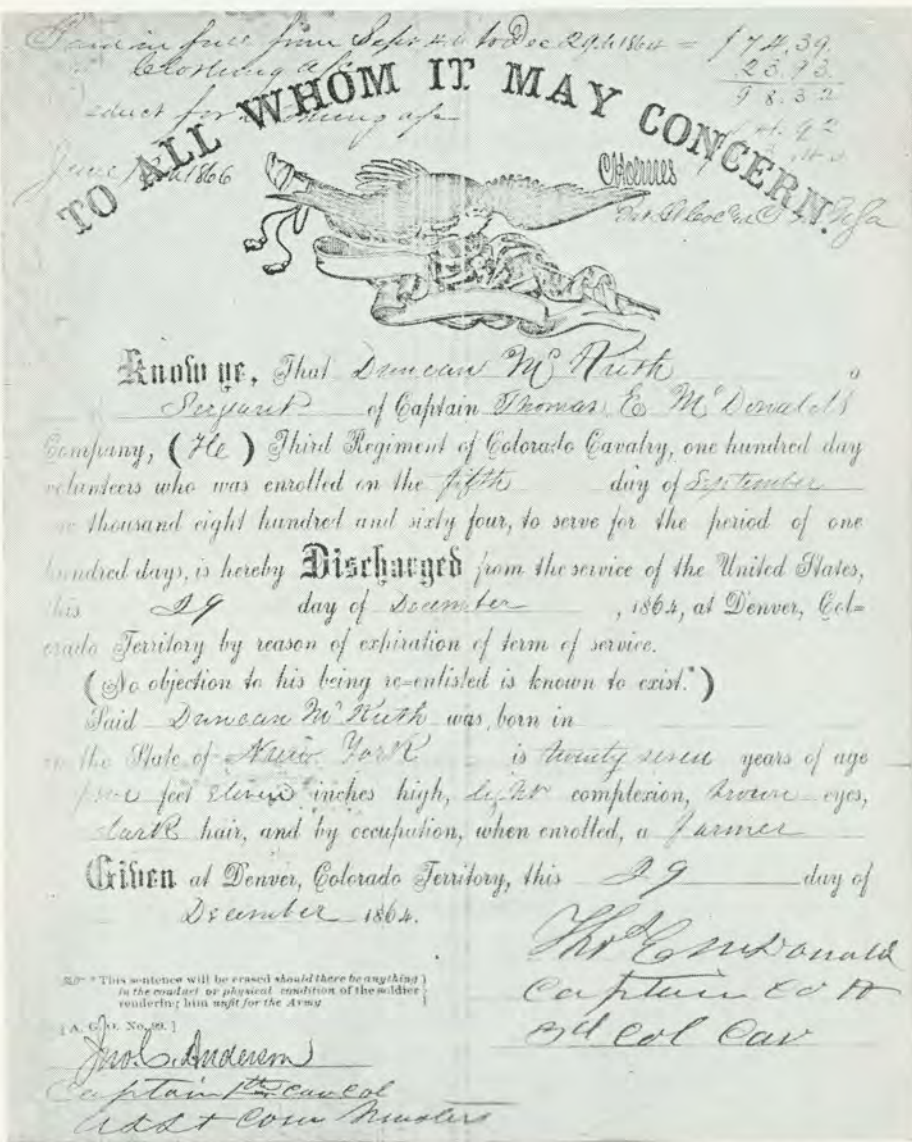 Paid in full from Sept 4th to Dec 29th 1864 = $74.39
Clothing a/c 23.93
98.32
deduct for clothing a/c
92
June 1866
CHolmes
TO ALL WHOM IT MAY CONCERN.
Know ye, That Duncan McKuth a
Sergeant of Captain Thomas E McDonalds
Company, (He) Third Regiment of Colorado Cavalry, one hundred day
volunteers who was enrolled on the fifth day of September
one thousand eight hundred and sixty four, to serve for the period of one
hundred days, is hereby Discharged from the service of the United States,
this 29 day of December, 1864, at Denver, Col=
orado Territory by reason of expiration of term of service.
(No objection to his being re=enlisted is known to exist.*)
Said Duncan McKuth was born in
in the State of New York is twenty seven years of age
five feet eleven inches high, light complexion, brown eyes,
dark hair, and by occupation, when enrolled, a Farmer
Given at Denver, Colorado Territory, this 29 day of
December 1864.
Thos E McDonald
Captain Co H
3d Col Cav
* This sentence will be erased should there be anything
in the conduct or physical condition of the soldier
rendering him unfit for the Army
[A. G. O. No. 99.]
Jno. C. Anderson
Captain 1st Cav Col
Asst Com Musters